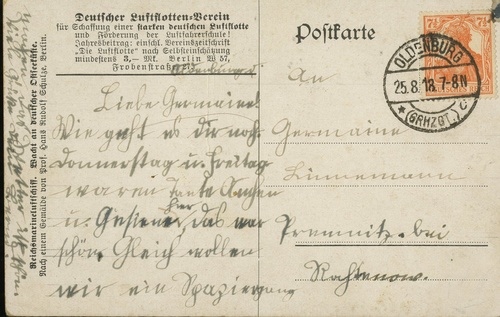 Deutscher Luftflotten-Verein
für Schaffung einer starken deutschen Luftflotte
und Förderung der Luftfahrerschule!
Jahresbeitrag: einschl. Vereinszeitschrift
"Die Luftflotte" nach Selbsteinschätzung
mindestens 3,— Mk. Berlin W 57,
Frobenstraße
Postkarte
7½ 7½
OLDENBURG
25.8.18. 7-8N
* (GRHZGT.) C
An
Germaine
Linnemann
Premnitz bei
Rathenow.
Liebe Germaine!
Wie geht es dir noch.
Donnerstag u. Freitag
waren Tante
u. hier, das war
schön. Gleich wollen
wir ein Spaziergang
Reichsmarineluftschiff. Wacht an deutscher Ostseeküste.
Nach einem Gemälde von Prof. Hans Rudolf Schulze, Berlin.